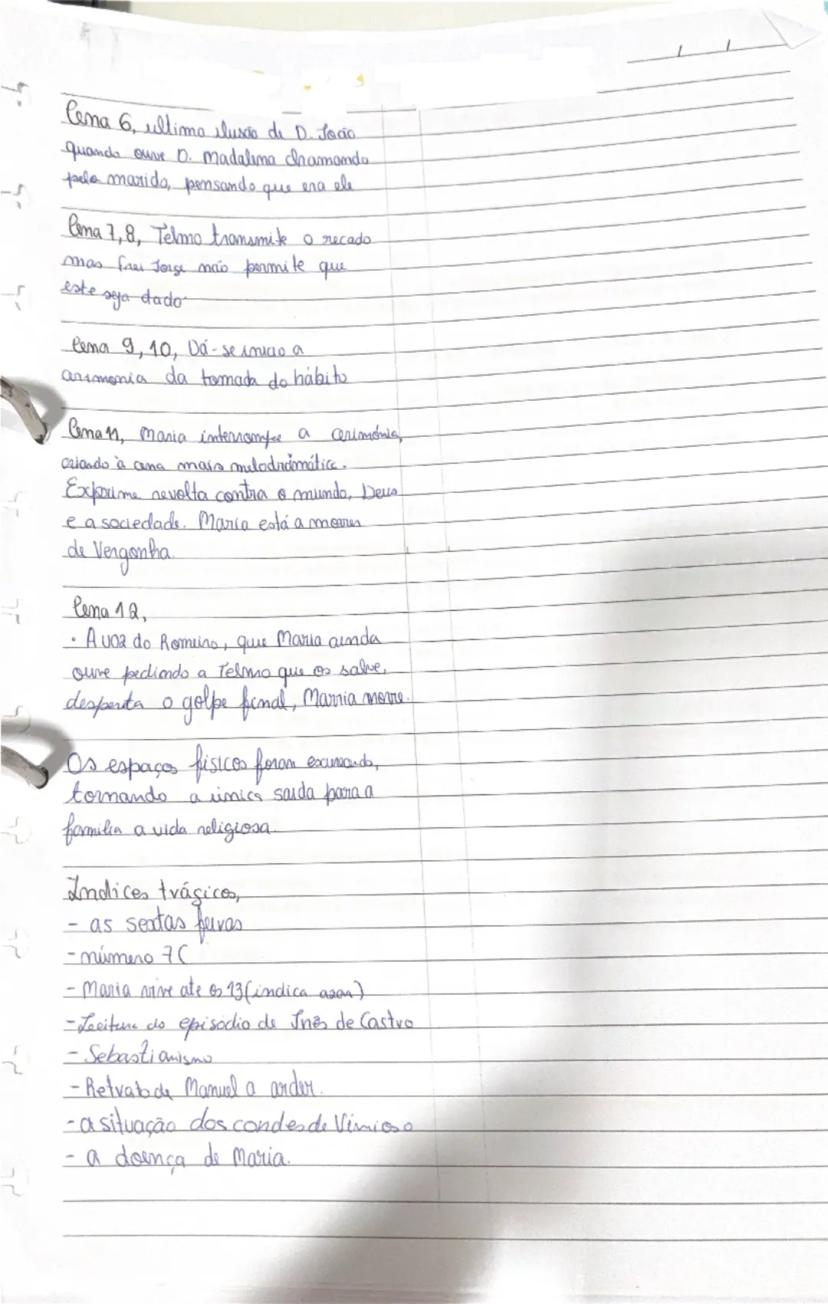 Cena 6, ultima ilusão de D. João
quando ouve D. Madalena chamando
pelo marido, pensando que era ele
Cena 7,8, Telmo transmite o recado
mas Frei Jorge não permite que
este seja dado
Cena 9, 10, Dá-se inicio a
cerimonia da tomada do hábito
Cena 11, Maria interrompe a cerimónia,
criando à cena mais melodramática.
Exprime revolta contra o mundo, Deus
e a sociedade. Maria está a morrer
de Vergonha.
Cena 12,
• A voz do Romeiro, que Maria ainda
ouve pedindo a Telmo que os salve,
desperta o golpe final, Marria morre.
Os espaços físicos foram
tornando a única saida para a
familia a vida religiosa.
Indices trágicos,
- as sextas feiras
- número 7(
- Maria vive ate os 13 (indica azar)
- Leitura do episódio de Inês de Castro
- Sebastianismo
- Retrato de Manuel a arder.
- a situação dos condes de Vimioso
- a doença de Maria.